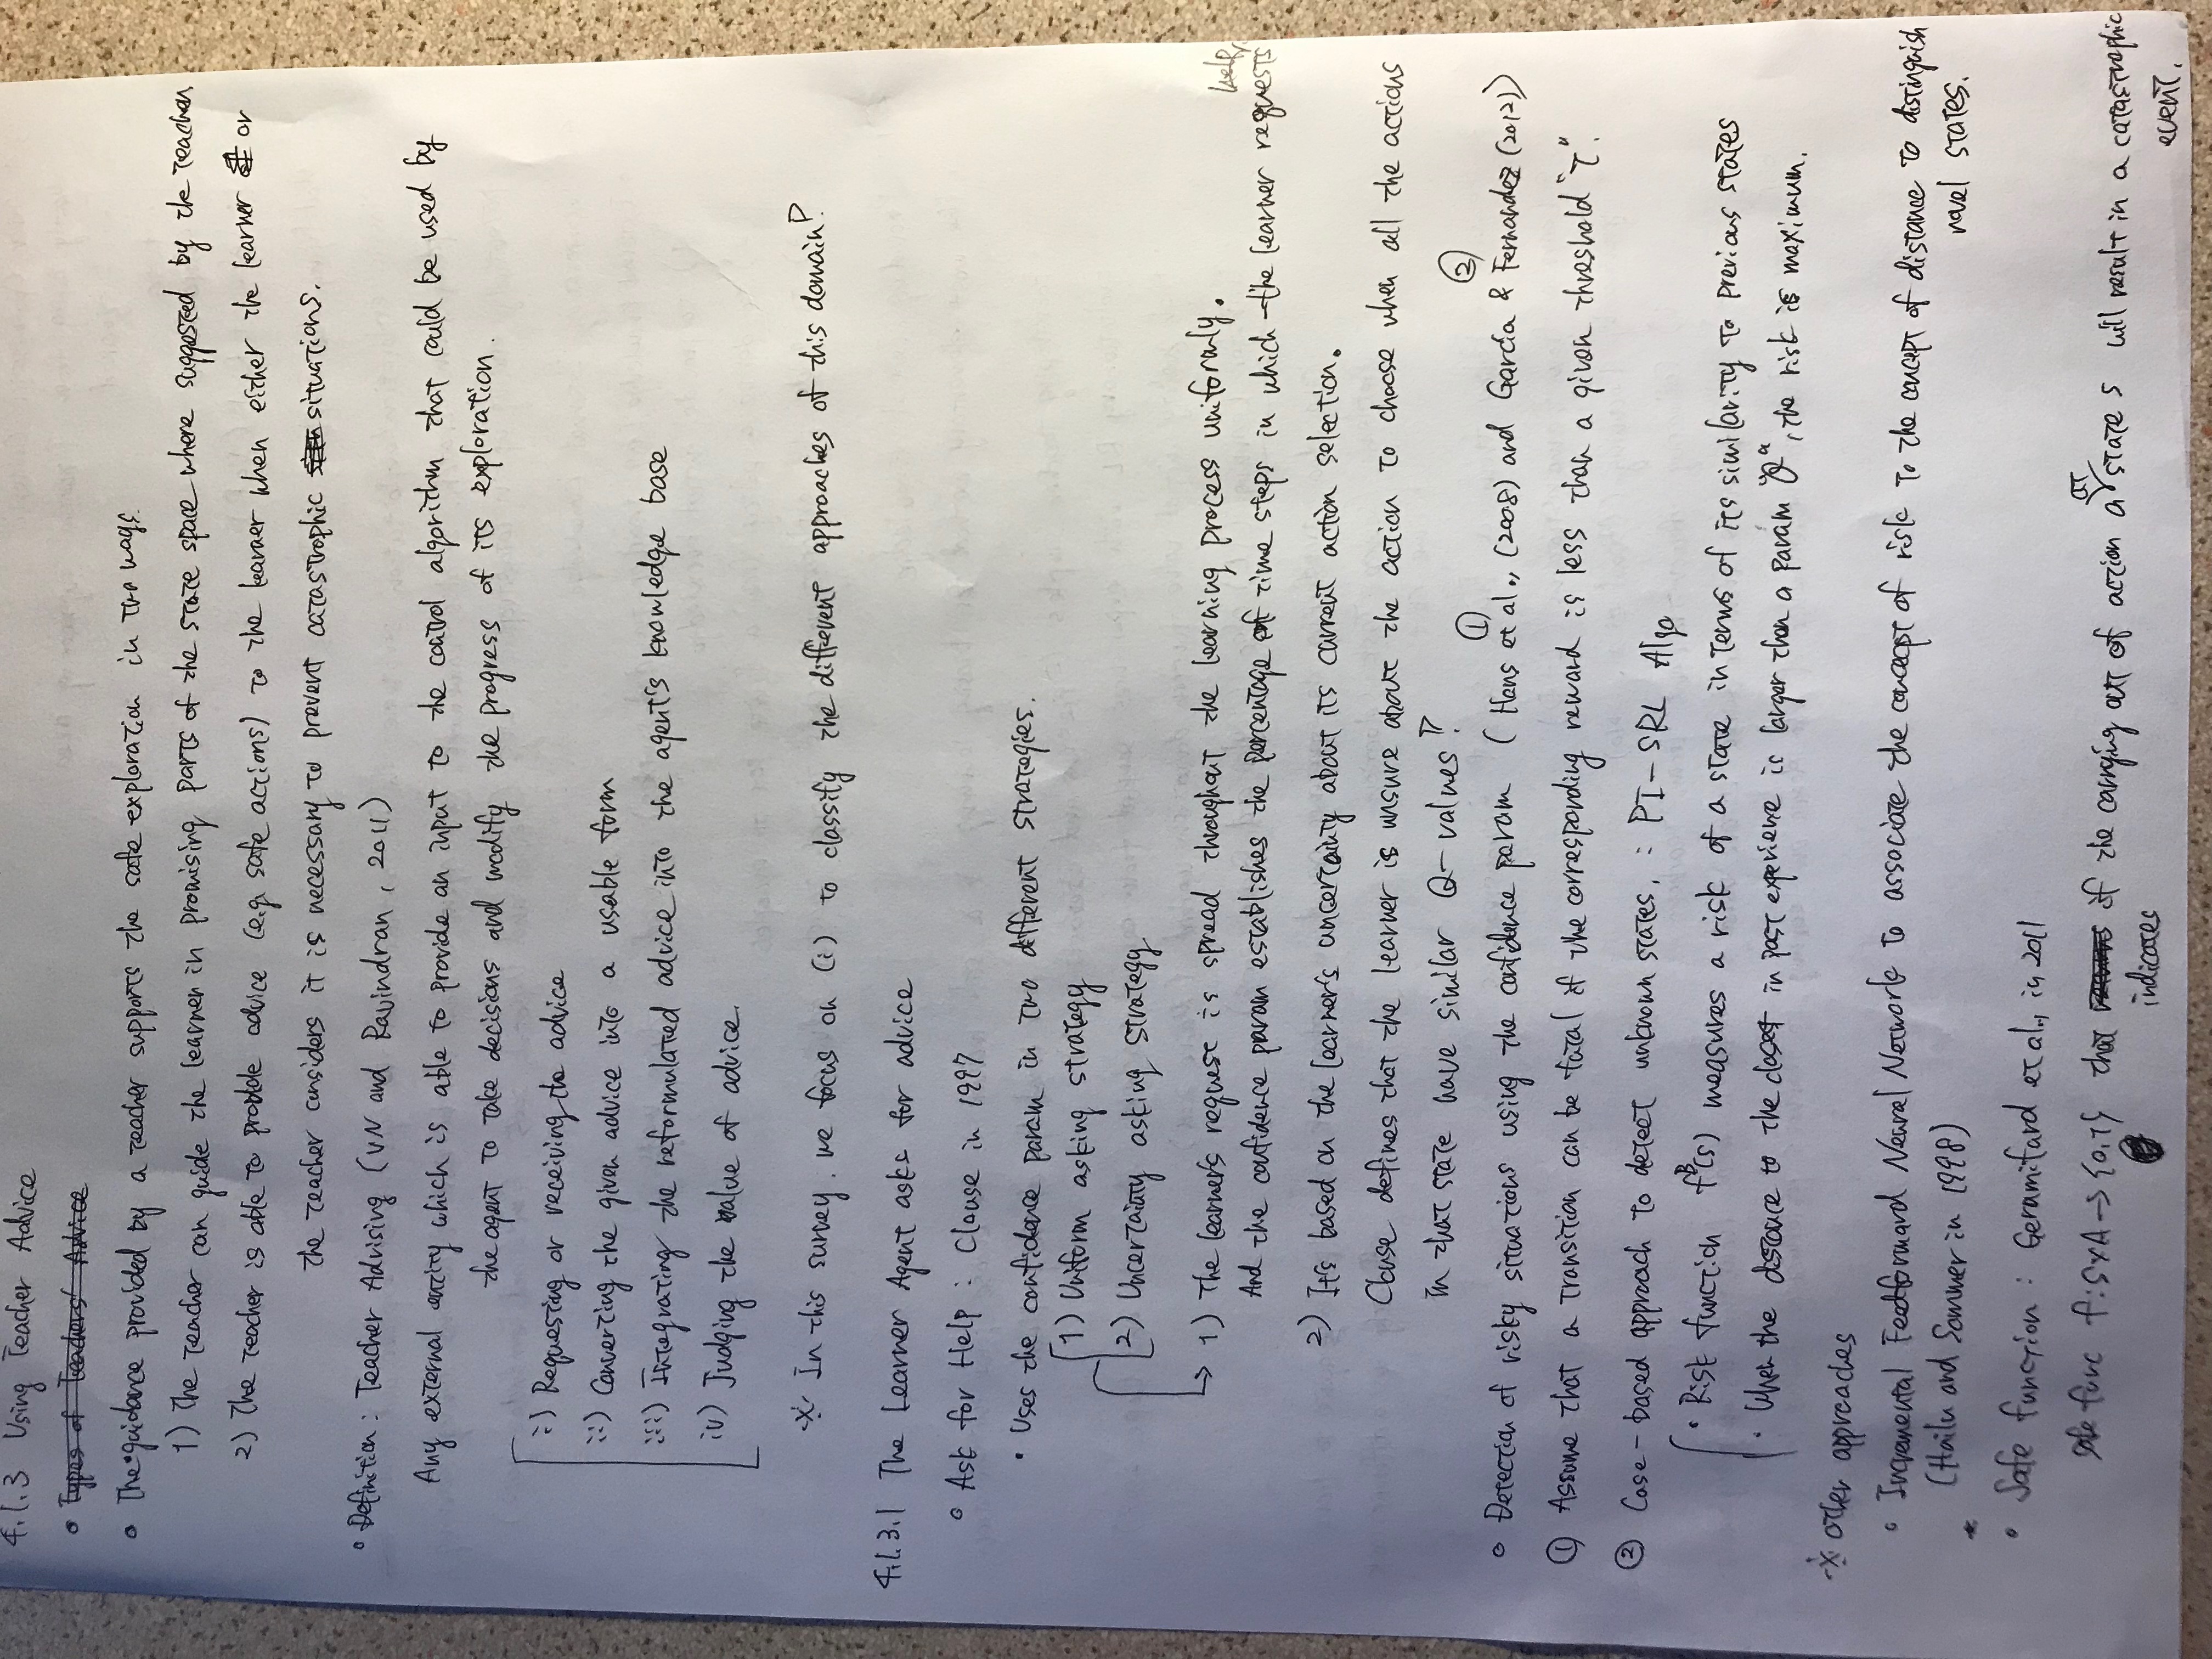 4.1.3 Using Teacher Advice
• Types of Teachers' Advice
• The guidance provided by a teacher supports the safe exploration in two ways.
1) The teacher can guide the learner in promising parts of the state space where suggested by the teacher
2) The teacher is able to provide advice (e.g. safe actions) to the learner when either the learner or
the teacher considers it is necessary to prevent catastrophic situations.
• Definition : Teacher Advising (VN and Ravindran, 2011)
Any external entity which is able to provide an input to the control algorithm that could be used by
the agent to take decisions and modify the progress of its exploration.
i) Requesting or receiving the advice
ii) Converting the given advice into a usable form
iii) Integrating the reformulated advice into the agent's knowledge base
iv) Judging the value of advice.
※ In this survey, we focus on (i) to classify the different approaches of this domain!
4.1.3.1 The Learner Agent asks for advice
• Ask for Help : Clouse in 1997
• Uses the confidence param in two different strategies.
1) Uniform asking strategy
2) Uncertainty asking strategy
→ 1) The learner's request is spread throughout the learning process uniformly.
And the confidence param establishes the percentage of time steps in which the learner requests help,
2) It's based on the learner's uncertainty about its current action selection.
Clouse defines that the learner is unsure about the action to choose when all the actions
in that state have similar Q-values!
① ②
• Detection of risky situations using the confidence param (Hans et al., (2008) and García & Fernandez (2012))
① Assume that a transition can be fatal if the corresponding reward is less than a given threshold "τ".
② Case-based approach to detect unknown states, : PI-SRL Algo
• Risk function fᴮ(s) measures a risk of a state in terms of its similarity to previous states
• When the distance to the closest in past experience is larger than a param "θ", the risk is maximum.
※ Other approaches
• Incremental Feedforward Neural Network to associate the concept of risk to the concept of distance to distinguish
(Hailu and Sommer in 1998) novel states.
• Safe function : Geramifard et al., in 2011
safe func f:S×A→{0,1} that indicates if the carrying out of action a at state s will result in a catastrophic
event.